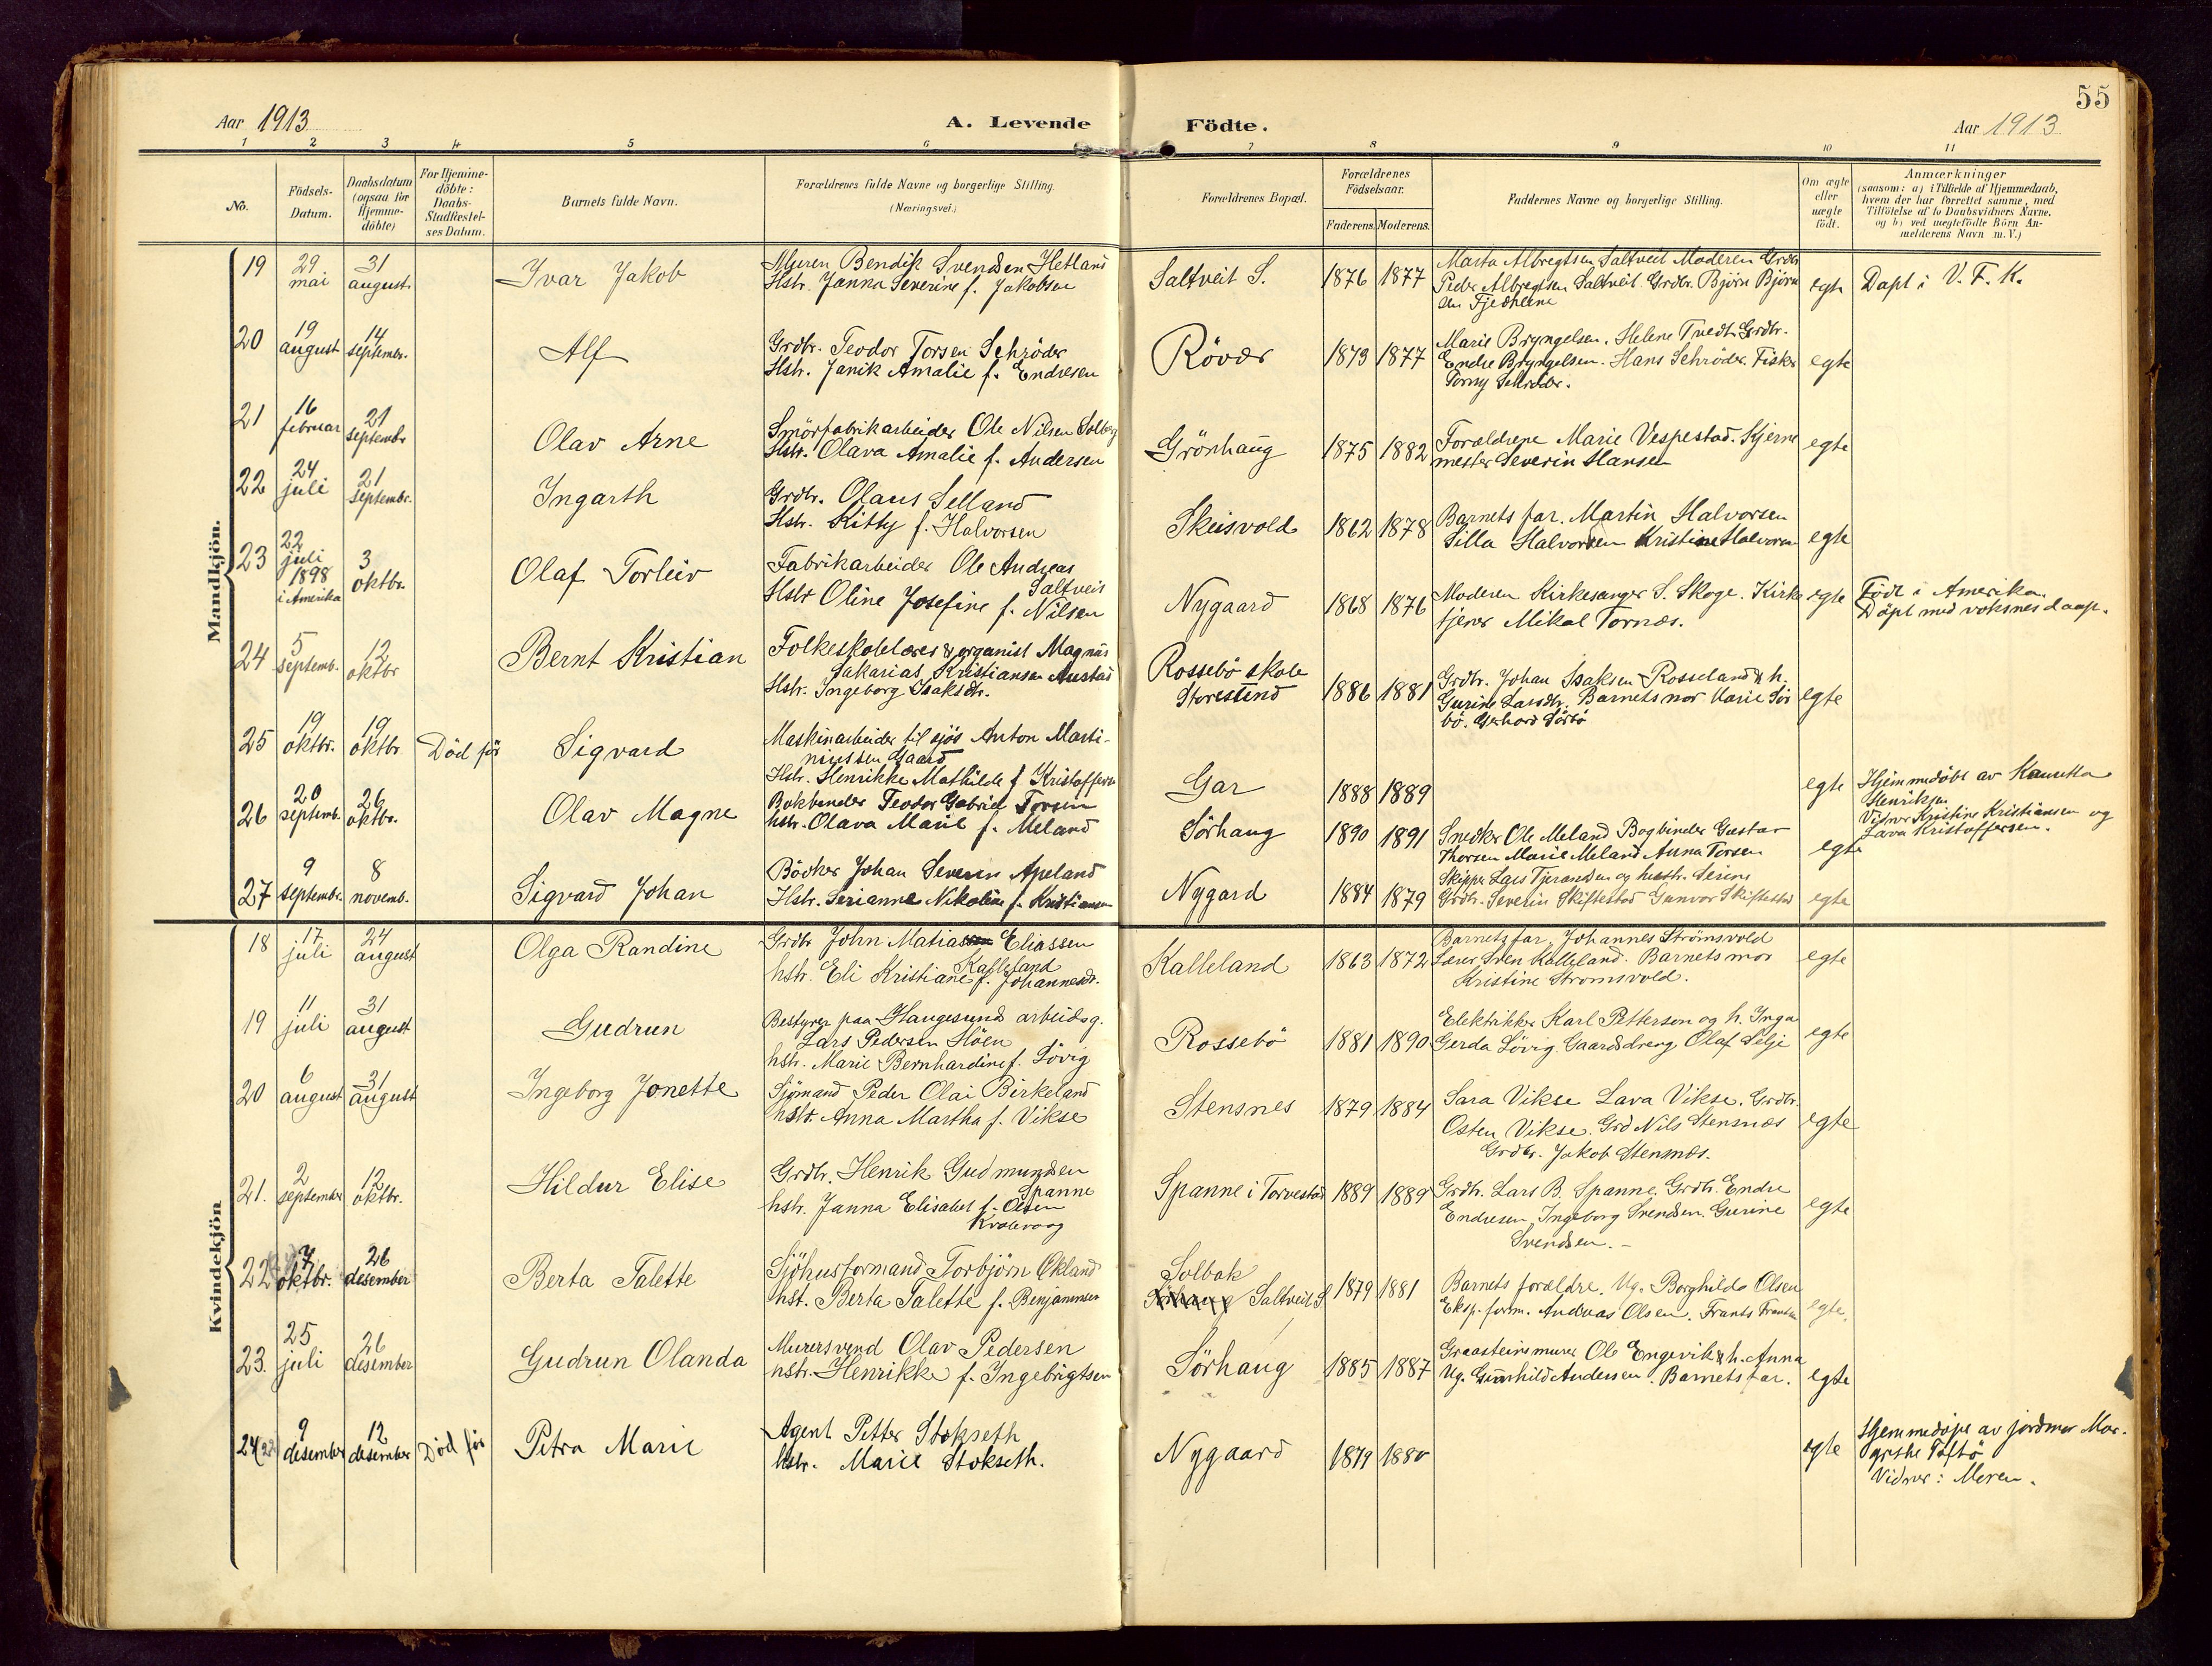 55
Aar 1913
A. Levende Födte.
Aar 1913
1 2 3 4 5 6 7 8 9 10 11
No.
Födsels-
Datum.
Daabsdatum
(ogsaa for
Hjemme-
döbte)
For Hjemme-
döbte:
Daabs-
Stadfæstel-
ses Datum.
Barnets fulde Navn.
Forældrenes fulde Navne og borgerlige Stilling.
(Næringsvei.)
Forældrenes Bopæl.
Forældrenes
Födselsaar.
Faderens. Moderens.
Faddernes Navne og borgerlige Stilling.
Om ægte
eller
uægte
födt.
Anmærkninger
(saasom: a) i Tilfælde af Hjemmedaab,
hvem der har forrettet samme, med
Tilföielse af to Daabsvidners Navne,
og b) ved uægtefödte Börn An-
melderens Navn m. V.)
Mandkjön.
19
29
mai
31
august
Ivar Jakob
Muren Bendik Svendsen Hetland
Hstr. Janna Severine f. Jakobsen
Saltveit S.
1876 1877
Marta Albregtsen Saltveit Moderen Grdbr
Peder Albregtsen Saltveit. Grdbr. Björn Björn
sen Fjedheine
egte
Döpt i V. F. K.
20
19
august
14
septembr.
Alf
Grdbr. Teodor Torsen Schröder
Hstr. Janik Amalie f. Endresen
Rövær
1873 1877
Marie Bryngelsen. Helene Tvedt. Grdbr.
Endre Bryngelsen. Hans Schröder. Fisker
Torny Schröder.
egte
21
16
februar
21
septembr
Olav Arne
Smörfabrikarbeider Ole Nilsen Solberg
Hstr. Olava Amalie f. Andersen
Grönhaug
1875 1882
Forældrene Marie Vespestad. Kjerne
mester Severin Hansen
egte
22
24
juli
21
septembr.
Ingarth
Grdbr. Olaus Selland
Hstr. Kitty f. Halvorsen
Skeisvold
1862 1878
Barnets far. Martin Halvorsen
Silla Halvorsen Kristine Halvorsen
egte
23
22
juli
1898
i Amerika
3
oktbr.
Olaf Torleiv
Fabrikarbeider Ole Andreas
Saltveit
Hstr Oline Josefine f. Nilsen
Nygaard
1868 1876
Moderen Kirkesanger S. Skoge. Kirke
tjener Mikal Tornæs.
egte
Födt i Amerika.
Döpt med voksnes daap.
24
5
septemb.
12
oktbr
Bernt Kristian
Folkeskolelærer & organist Magnus
Sakarias Kristiansen Austad
Hstr. Ingeborg Isaksdtr.
Rossebö skole
Storesund
1886 1881
Grdbr. Johan Isaksen Rosseland & h.
Gurine Larsdtr. Barnets mor Marie Sör
bö. Gerhard Sörbö
egte
25
19
oktbr.
19
oktbr.
Död för
Sigvard
Maskinarbeider til sjös Anton Marti-
niussen Gaard
Hstr. Henrikke Mathilde f Kristoffersen
Gar
1888 1889
egte
Hjemmedöbt av
Henriksen
Vidner Kristine Kristiansen og
Lava Kristoffersen.
26
20
septemb.
26
oktbr.
Olav Magne
Bokbinder Teodor Gabriel Torsen
hstr. Olava Marie f. Meland
Sörhaug
1890 1891
Snedker Ole Meland Bogbinder Gustav
Thorsen Marie Meland Anna Torsen
egte
27
9
septembr.
8
novemb.
Sigvard Johan
Bödker Johan Severin Apeland
Hstr. Serianne Nikoline f. Kristiansen
Nygard
1884 1879
Skipper Lars Tjerandsen og hustr. Serine
Grdbr. Severin Skiftestad Gunvor Skiftestad
egte
Kvindekjön
18
17
juli
24
august
Olga Randine
Grdbr John Matiassen Eliassen
Kalleland
hstr. Eli Kristiane f. Johannesdr.
Kalleland
1863 1872
Barnets far, Johannes Strömsvold
Lærer Sven Kalleland. Barnets mor
Kristine Stromsvold.
egte
19
11
juli
31
august
Gudrun
Bestyrer paa Haugesunds arbeidsg.
Lars Pedersen Höen
hstr. Marie Bernhardine f. Lövig
Rossebö
1881 1890
Elektriker Karl Petterson og h. Inga
Gerda Lövig. Gaardsdreng Olaf Silje
egte
20
6
august
31
august
Ingeborg Jonette
Sjömand Peder Olai Birkeland
hstr. Anna Martha f. Vikse
Stensnes
1879 1884
Sara Vikse Lava Vikse. Grdbr.
Osten Vikse. Grd Nils Stensnæs
Grdbr. Jakob Stensnæs.
egte
21.
2
september
12
oktbr.
Hildur Elise
Grdbr. Henrik Gudmundsen
Spanne
hstr. Janna Elisabet f. Olsen
Kvalevaag
Spanne i Torvestad
1889 1889
Grdbr. Lars B. Spanne. Grdbr. Endre
Endresen, Ingeborg Svendsen. Gurine
Svendsen. -
egte
22
7
oktbr.
26
desember
Berta Talette
Sjöhusformand Torbjörn Økland
hst. Berta Talette f. Benjaminsen
Solbak
Sörhaug Saltveit S
1879 1881
Barnets forældre. Ug. Borghilda Olsen
Eksp. form. Andreas Olsen. Frants Frantsen
egte.
23.
25
juli
26
desember
Gudrun Olanda
Murersvend Olav Pedersen
hstr. Henrikke f. Ingebrigtsen
Sörhaug
1885 1887
Graasteinsmurer Ole Engevik & h. Anna
Ug. Gunnhild Andersen. Barnets far.
egte
24
9
desember
12
desember
Död för
Petra Marie
Agent Petter Stokseth
hstr. Marie Stokseth.
Nygaard
1879 1880
egte
Hjemmedöpt av jordmor Mar-
grethe Toftö
Vidner: Moren.